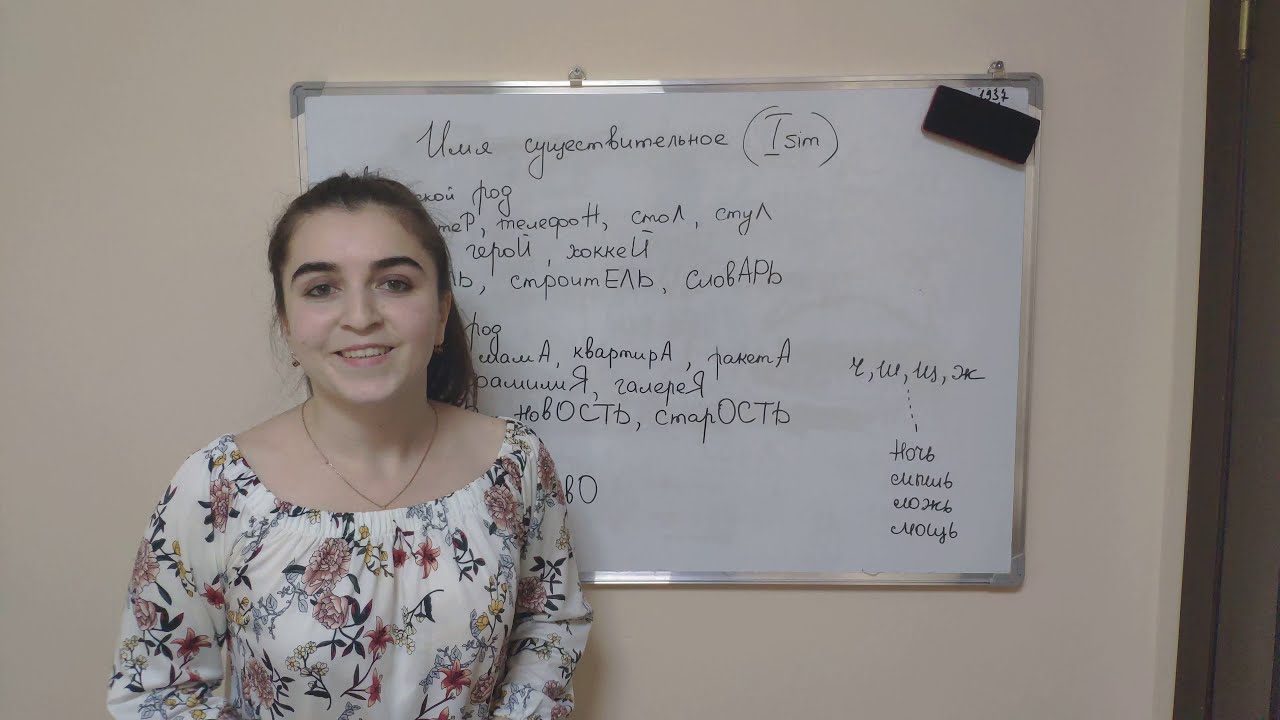 1937
Имя существительное (Isim)
ской род
теР, телефоН, стоЛ, стуЛ
героЙ, хоккеЙ
ЛЬ, строитЕЛЬ, словАРЬ
род
мамА, квартирА, ракетА
фамилиЯ, галереЯ
новОСТЬ, старОСТЬ
вО
ч, ш, щ, ж
ночь
мышь
ложь
мощь